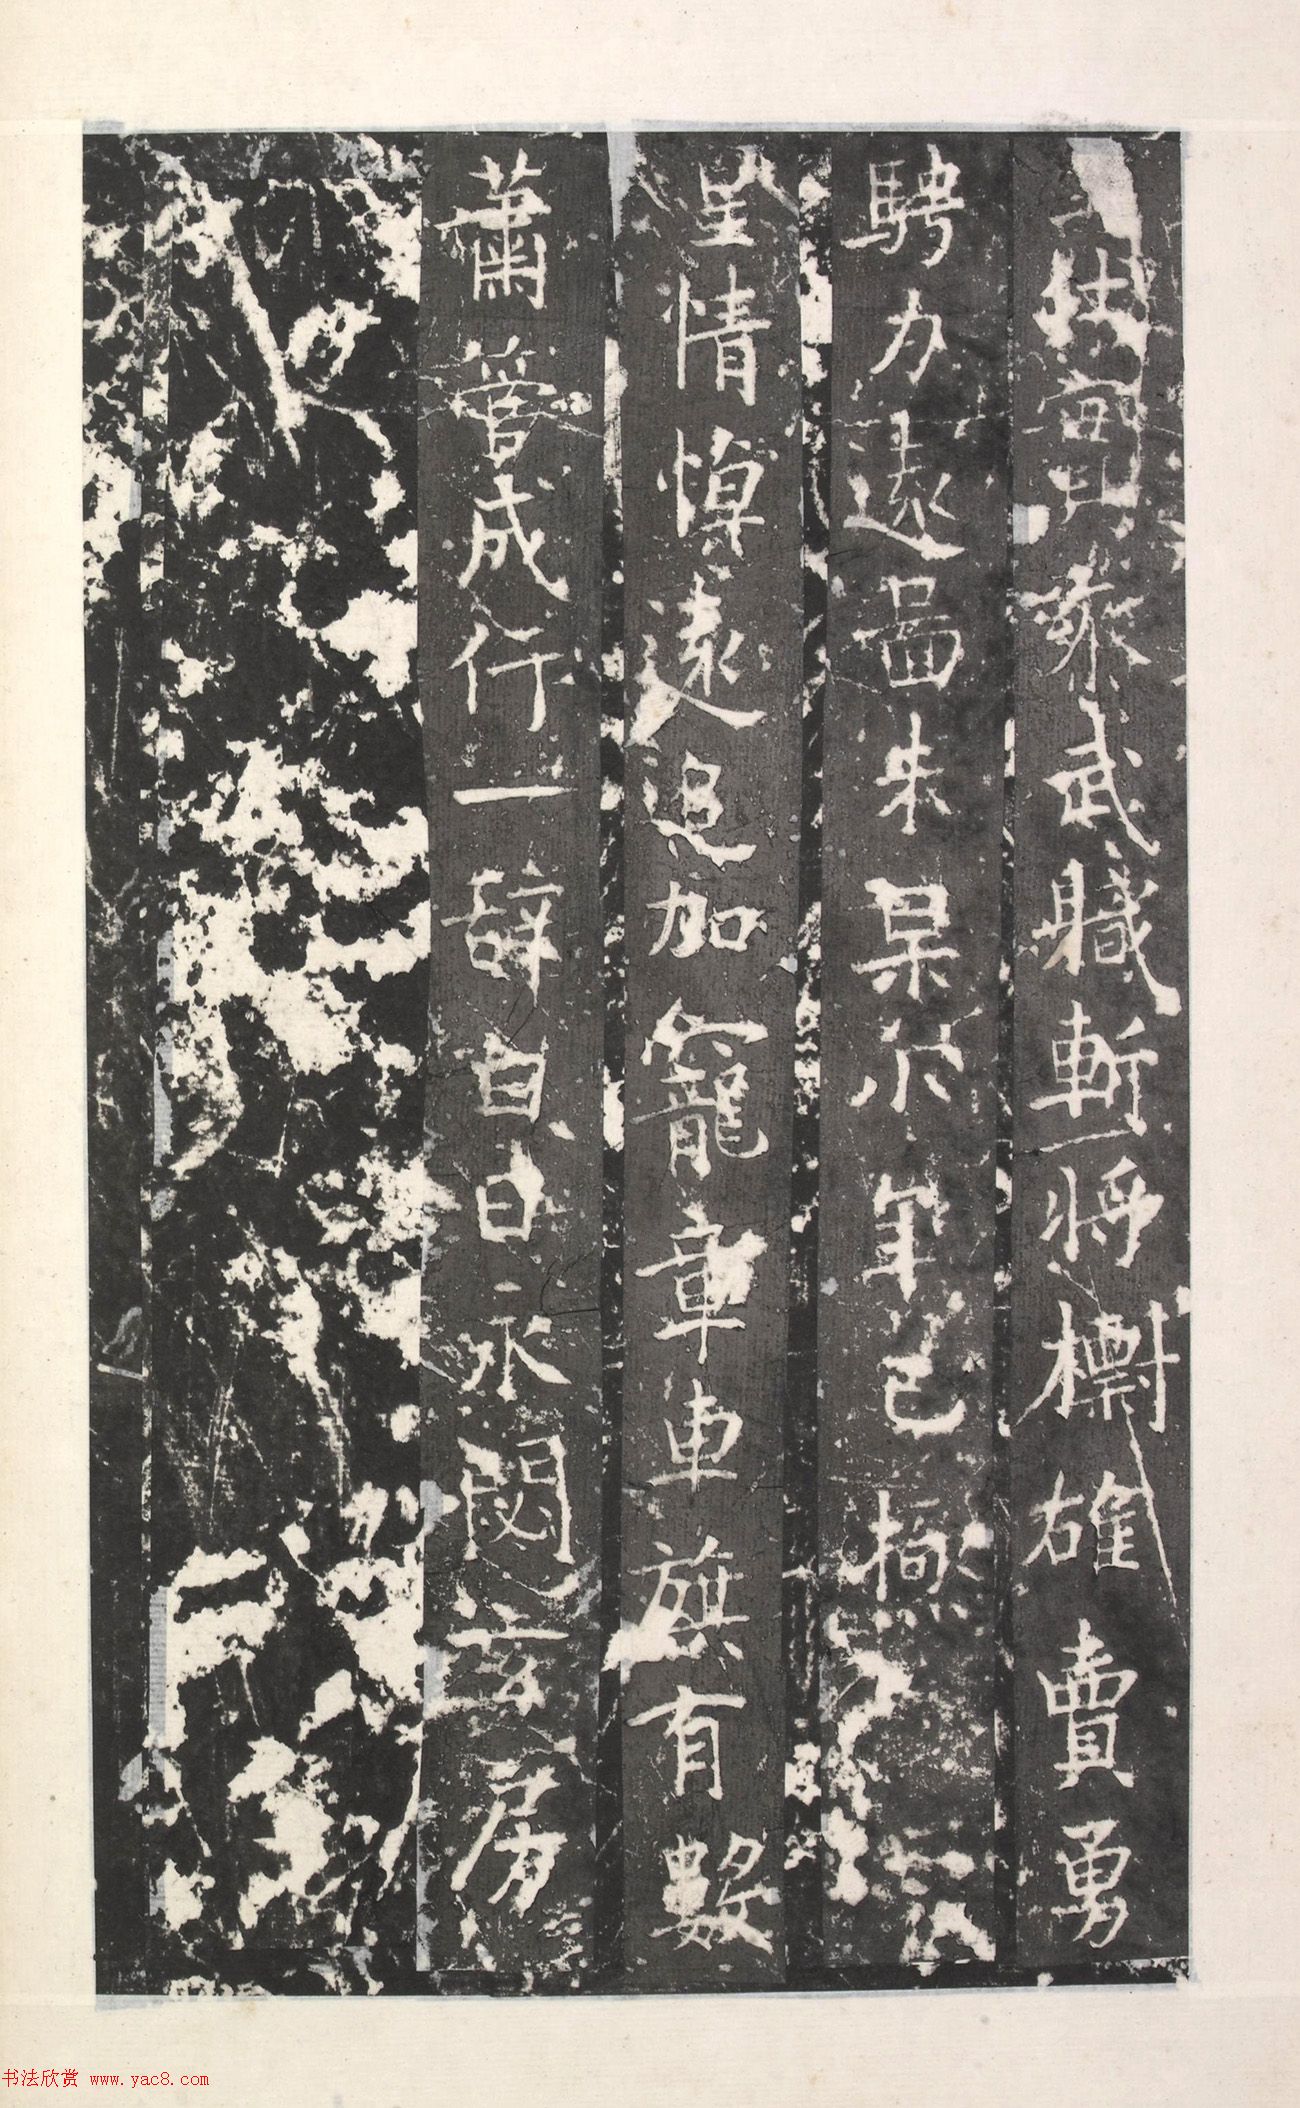 仕實叅武職斬將雄賣勇
騁力遠啚未果尒年已極
皇情悼遠追加寵章車旗有數
蕭管成行一辭白日永閟玄房
书法欣赏 www.yac8.com